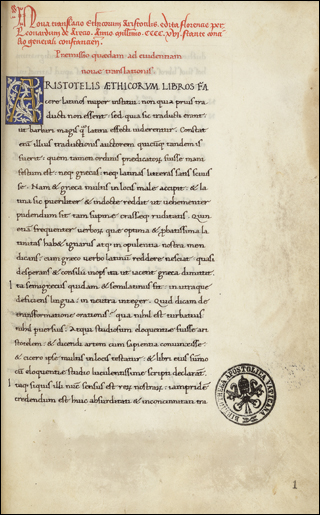 Noua translatio Ethicorum Aristotelis edita florentie per
Leonardum de Aretio. Anno
general
Premissio quedam ad euidentiam
noue translationis
ARISTOTELIS AETHICORVM LIBROS FA
cere latinos nuper institui. non quia prius tra
ducti non essent. sed quia sic traducti erant
ut barbari magis q̃ latini effecti uiderentur. Constat
enĩ illius traductionis auctorem quicũq tandem is
fuerit. quem tamen ordinis predicatorũ fuisse mani
festum est. neq grecas neq latinas litteras satis sciuis
se. Nam & greca multis in locis male accipit. & la
tina sic pueriliter & indocte reddit. ut uehementer
pudendum sit tam supine crasseq ruditatis. Quin
etiã frequenter uerborũ que optima & pbatissima la
tinitas habet ignarus atq in opulentia nostra men
dicans. cum greco uerbo latinũ reddere nesciat. quasi
desperans & consilii inops ita ut iacent greca dimittit.
Ita semigrecus quidam & semilatinus fit. in utraque
deficiens lingua. in neutra integer. Quid dicam de
transformatione orationis. qua nihil est turbatius
nihil puersius. Atqui studiosum eloquentie fuisse ari
stotelem. & dicendi artem cum sapientia coniunxisse
& cicero ipse multis in locis testatur. & libri eius summo
cũ eloquentie studio luculentissime scripti declarãt.
Itaq siquis illi nunc sensus est rerũ nostrarũ. iampride
credendum est huic absurditati & inconcinnitati tra
BIBLIOTHECA APOSTOLICA VATICANA
1